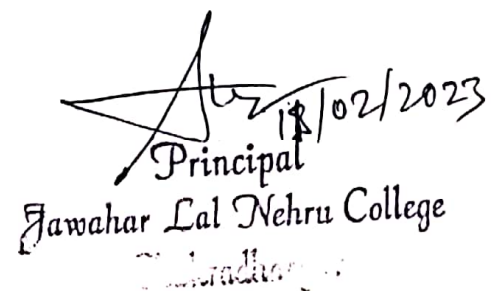 18/02/2023
Principal
Jawahar Lal Nehru College